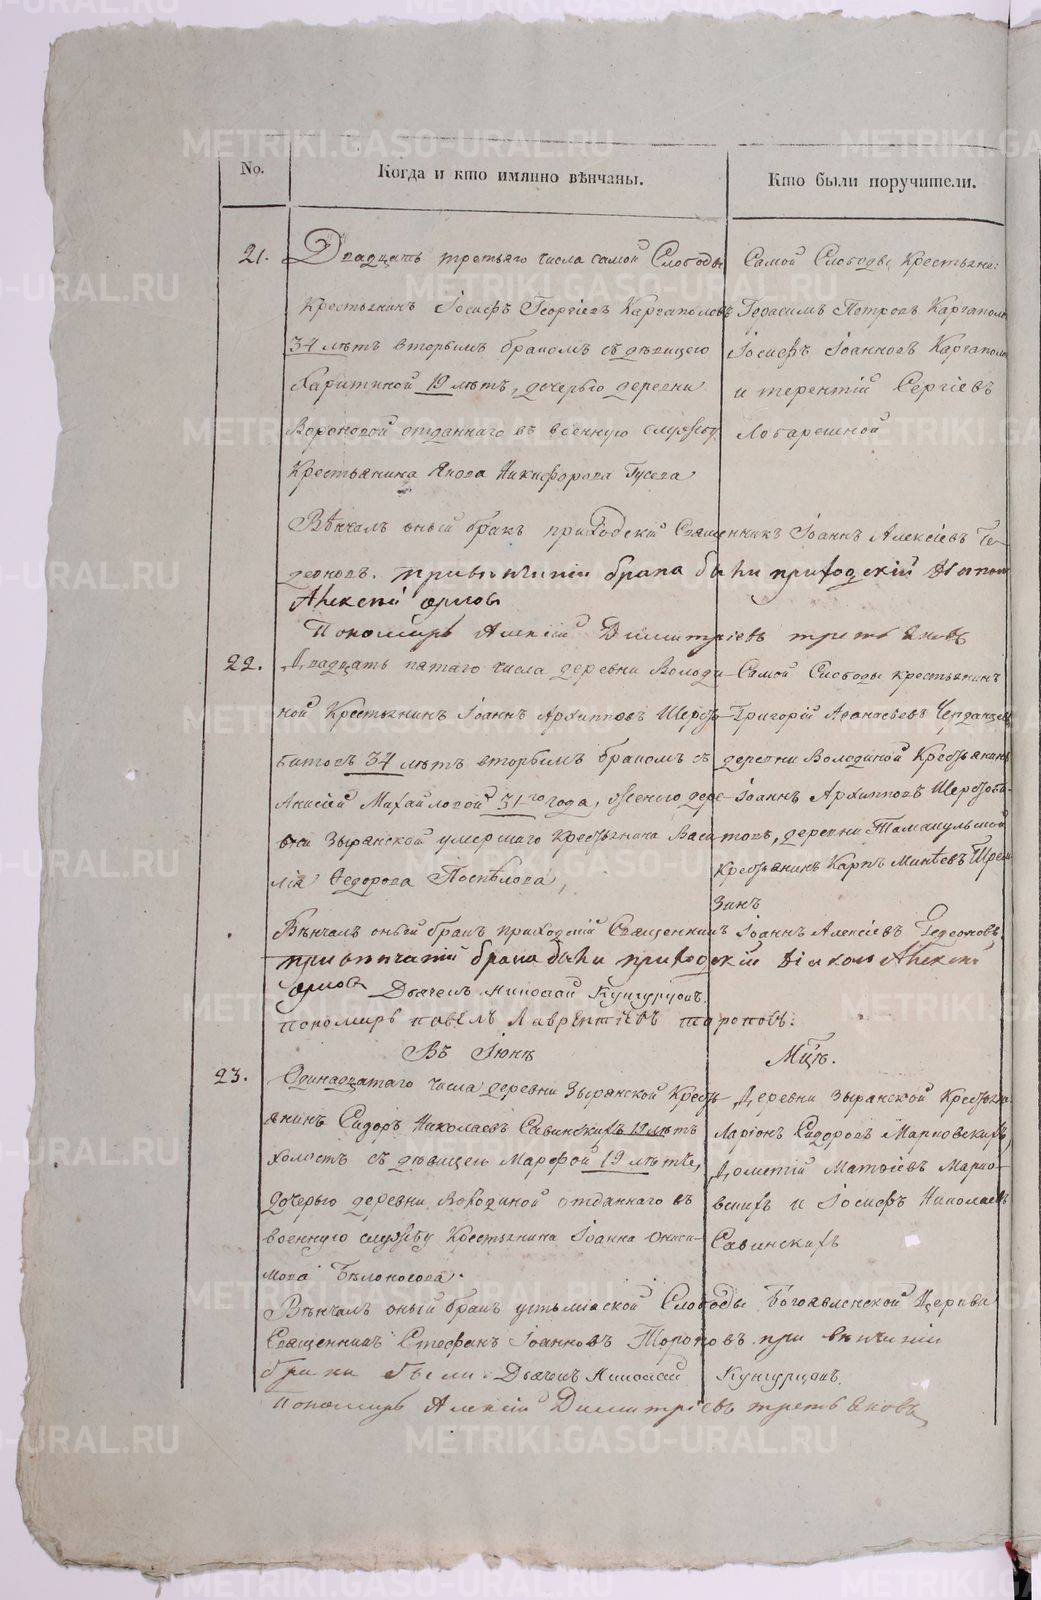 No.
Когда и кто имянно вѣнчаны.
Кто были поручители.
21.
Двадцать третьяго числа самой Слободы
Крестьянинъ Іосифъ Георгіевъ Каргаполовъ
34 лѣтъ вторымъ бракомъ съ дѣвицею
Харитиной 19 лѣтъ, дочерью деревни
Вороновой отданнаго въ военную службу
Крестьянина Якова Никифорова Гусева
Самой Слободы Крестьяне:
Герасимъ Петровъ Каргаполо
Іосифъ Іоанновъ Каргапол
и терентій Сергіевъ
Вѣнчалъ оный бракъ приходскій Священникъ Іоаннъ Алексіевъ Ге-
деоновъ. при вѣнчаніи брака были приходскій Діаконъ
Алексей орловъ
Пономарь Алексій Димитріевъ третьяковъ
22.
Двадцать пятаго числа деревни Володи-
ной Крестьянинъ Іоаннъ Архиповъ Щерба-
битовъ 34 лѣтъ вторымъ бракомъ съ
Анисіей Михайловой 31 го года, женою дере-
вни Зырянской умершаго Крестьянина Васи-
лія Федорова Поспѣлова,
Самой Слободы крестьянинъ
Григорій Афанасьевъ
деревни Володиной Крестьянинъ
Іоаннъ Архиповъ
товъ, деревни Тамакульской
Крестьянинъ Карпъ Минѣевъ
зинъ
Вѣнчалъ оный бракъ приходскій Священникъ Іоаннъ Алексіевъ Гедеоновъ.
при вѣнчаніи брака были приходскій Діаконъ Алексей
орловъ Дьячекъ Николай Кунгурцовъ.
пономарь павелъ Лаврентіевъ тороповъ.
Въ Іюнѣ Мцѣ.
23.
Одинадцатаго числа деревни Зырянской Кресть-
янинъ Сидоръ Николаевъ Савинскихъ 19 лѣтъ
холостъ съ дѣвицею Марфой 19 лѣтъ,
дочерью деревни Володиной отданнаго въ
военную службу Крестьянина Іоанна Ониси-
мова Бѣлоногова.
Деревни Зырянской Крестьяне
Ларіонъ Сидоровъ Марковскихъ,
Дометій Матвіевъ Марко-
вскихъ и Іосифъ Николаевъ
Савинскихъ
Вѣнчалъ оный бракъ устьміаской Слободы Богоявленской Церкви
Священникъ Стефанъ Іоанновъ Тороповъ при вѣнчаніи
брака были. Дьячекъ Николай Кунгурцовъ.
Пономарь Алексій Димитріевъ третьяковъ
METRIKI.GASO-URAL.RU